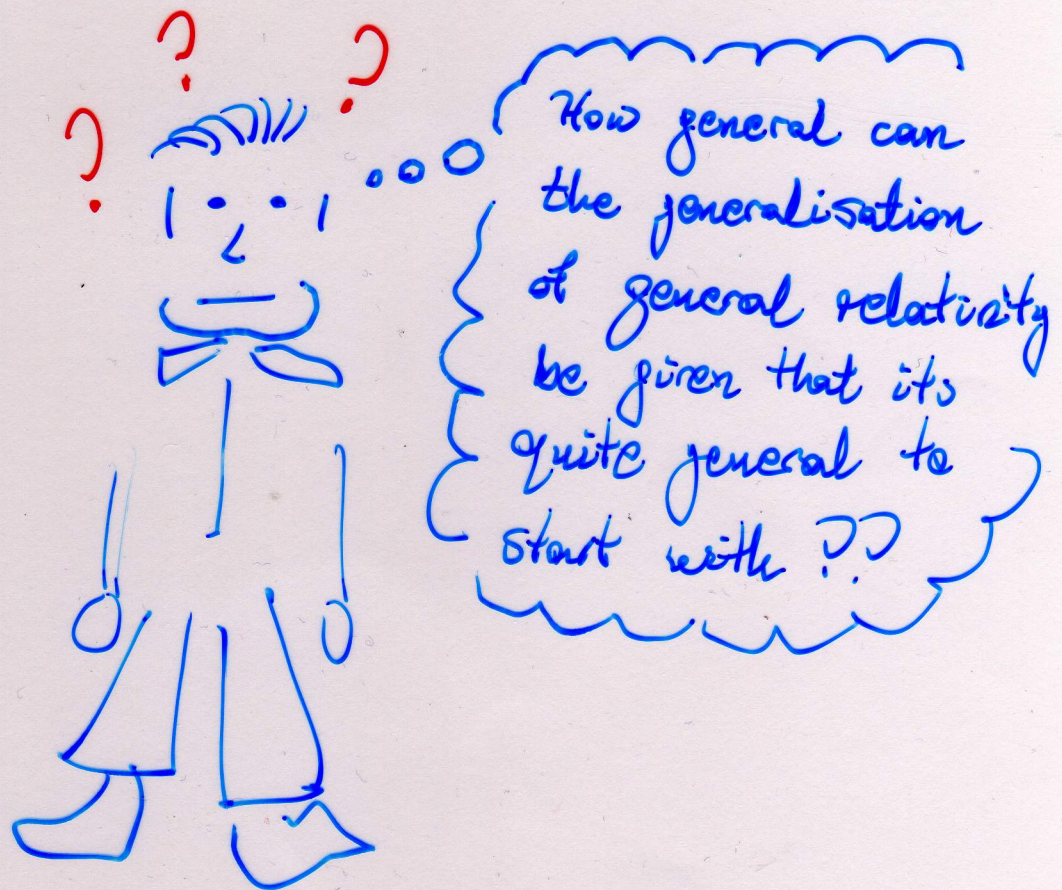 ?
?
?
How general can
the generalisation
of general relativity
be given that its
quite general to
start with ??